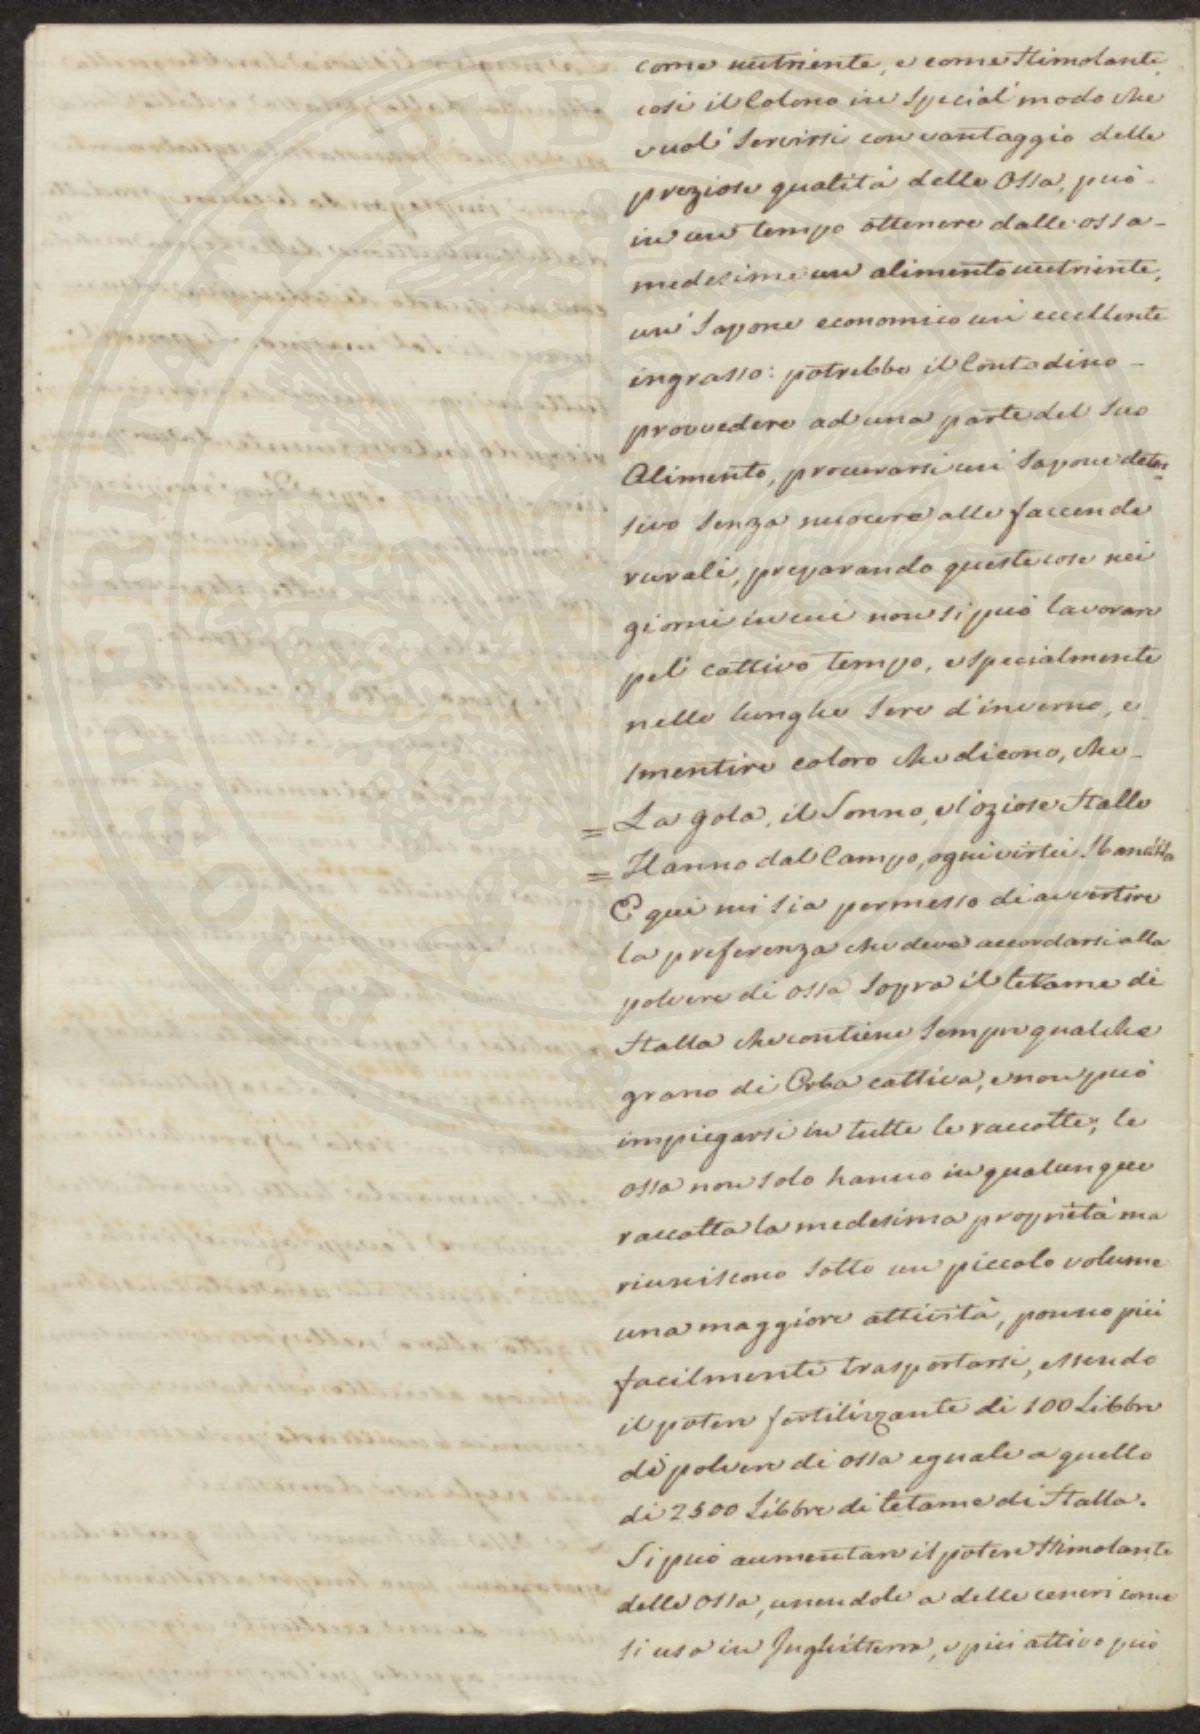 come nutriente, e come Stimolante
così il Colono in Special modo che
vuol' Servirsi con vantaggio delle
preziose qualità delle Ossa, può
in un tempo ottenere dalle ossa
medesime un alimento nutriente,
un' Sapone economico un' eccellente
ingrasso: potrebbe il Contadino
provvedere ad una parte del Suo
Alimento, procurarsi un' Sapone deter=
sivo Senza nuocere alle faccende
rurali, preparando queste cose nei
giorni in cui non si può lavorare
pel' cattivo tempo, e specialmente
nelle lunghe Sere d'inverno, e
Smentire coloro che dicono, che
= La gola, il Sonno, e l'oziose Stalle
= Hanno dal Campo, ogni virtù Sbandita
E qui mi Sia permesso di avvertire
la preferenza che deve accordarsi alla
polvere di ossa Sopra il letame di
Stalla che contiene Sempre qualche
grano di Erba cattiva, e non può
impiegarsi in tutte le raccolte; le
ossa non solo hanno in qualunque
raccolta la medesima proprietà ma
riuniscono Sotto un piccolo volume
una maggiore attività, ponno più
facilmente trasportarsi, essendo
il potere fertilizzante di 100 Libbre
di polvere di ossa eguale a quello
di 2500 Libbre di letame di Stalla.
Si può aumentare il potere Stimolante
delle Ossa, unendole a delle ceneri come
Si usa in Inghilterra, e più attivo può